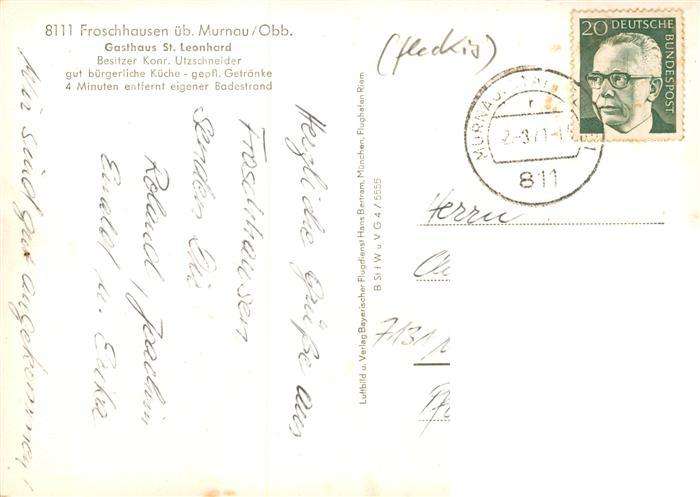 8111 Froschhausen üb. Murnau/Obb.
Gasthaus St. Leonhard
Besitzer Konr. Utzschneider
gut bürgerliche Küche - gepfl. Getränke
4 Minuten entfernt eigener Badestrand
(fleckig)
20 DEUTSCHE
BUNDESPOST
MURNAU
811
Herrn
7131
Luftbild u. Verlag Bayerischer Flugdienst Hans Bertram, München, Flughafen Riem
B St f W u. V G 4 / 5555
Herzliche Grüße aus
Froschhausen
senden Dir
Roland,
u.
Wir sind gut angekommen!